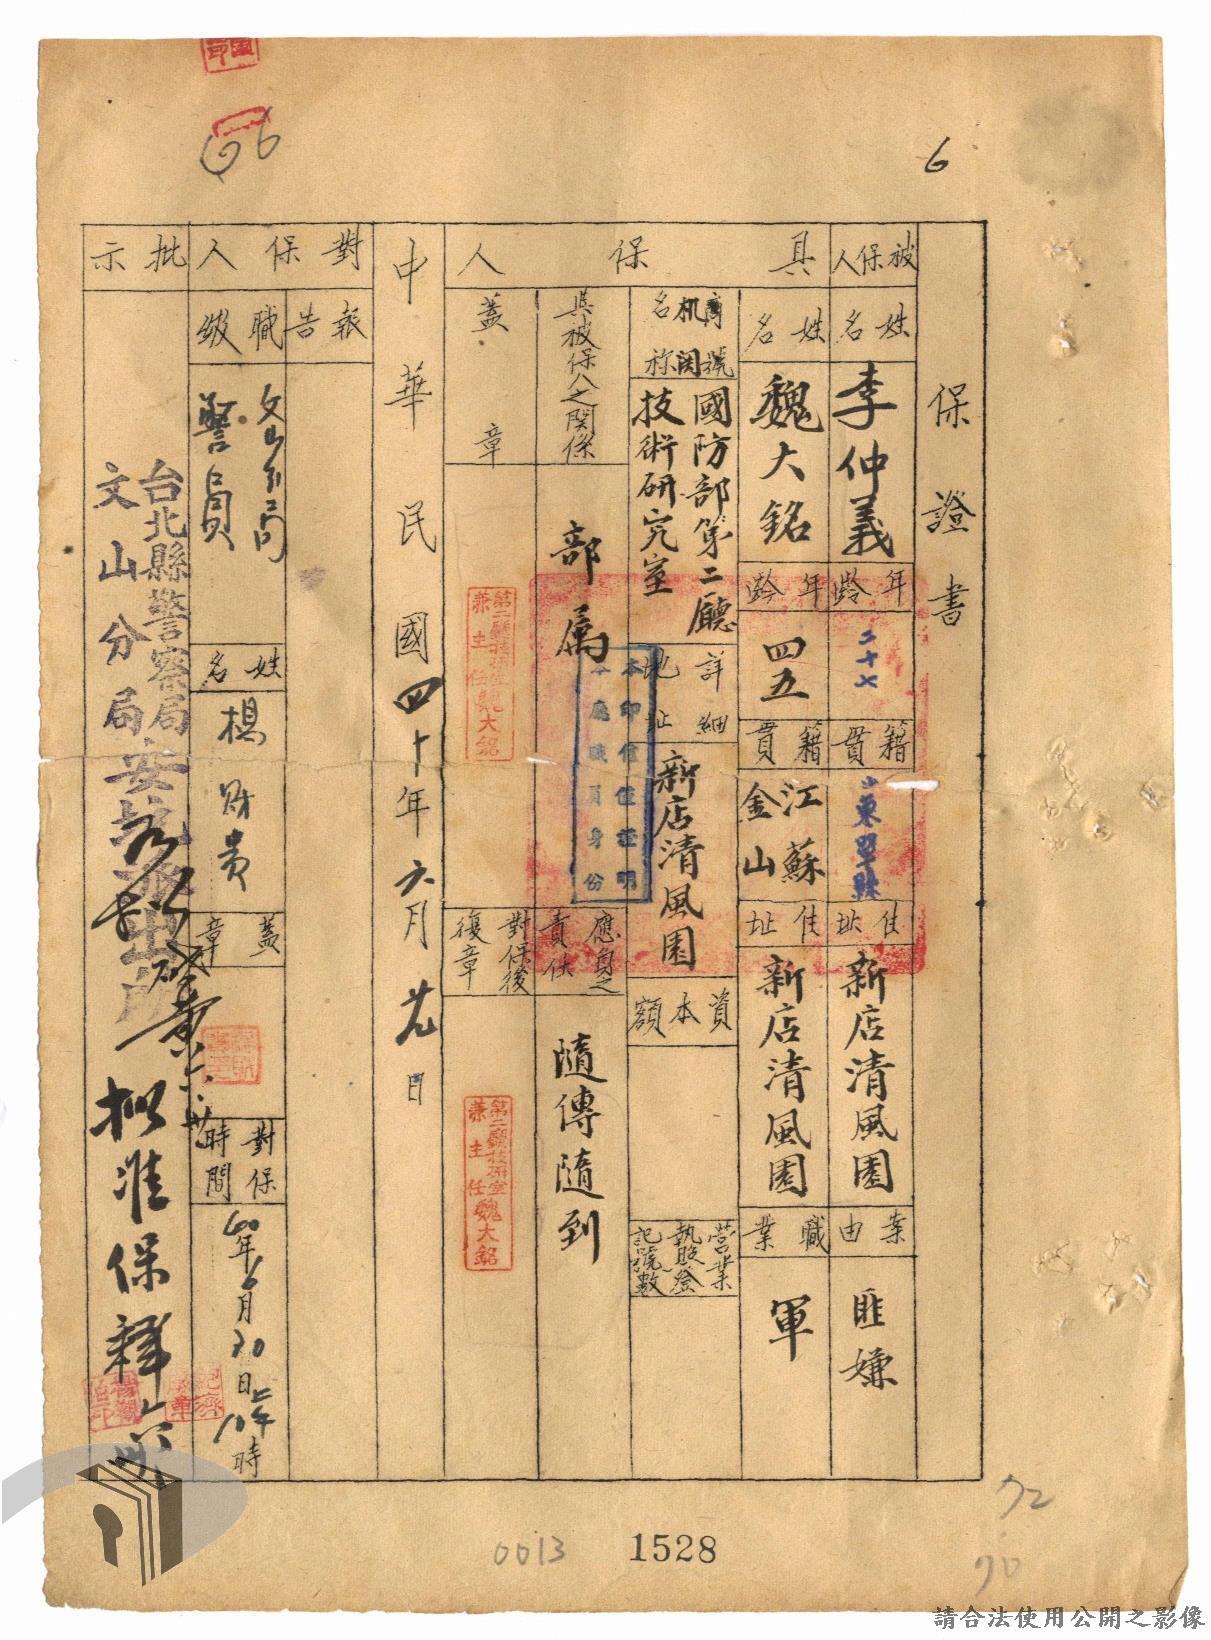 6
保證書
被保人
姓名
李仲義
年齡
二十七
籍貫
山東單縣
住址
新店清風園
案由
匪嫌
具保人
姓名
魏大銘
年齡
四五
籍貫
江蘇
金山
住址
新店清風園
職業
軍
商號
机関
名称
國防部第二廳
技術研究室
詳細
地址
新店清風園
資本額
營業
執照登
記號數
與被保人之関係
部属
應負之
責任
隨傳隨到
蓋章
第二廳技研室
兼主任魏大銘
對保後
復章
第二廳技研室
兼主任魏大銘
本印信僅證明
本廳職員身份
中華民國四十年六月廿九日
對保人
報告
職級
文山分局
警員
姓名
楊財貴
蓋章
對保
時間
40年6月30日上午10時
批示
台北縣警察局
文山分局安坑派出所
擬准保釋
66
0013
1528
72
70
請合法使用公開之影像